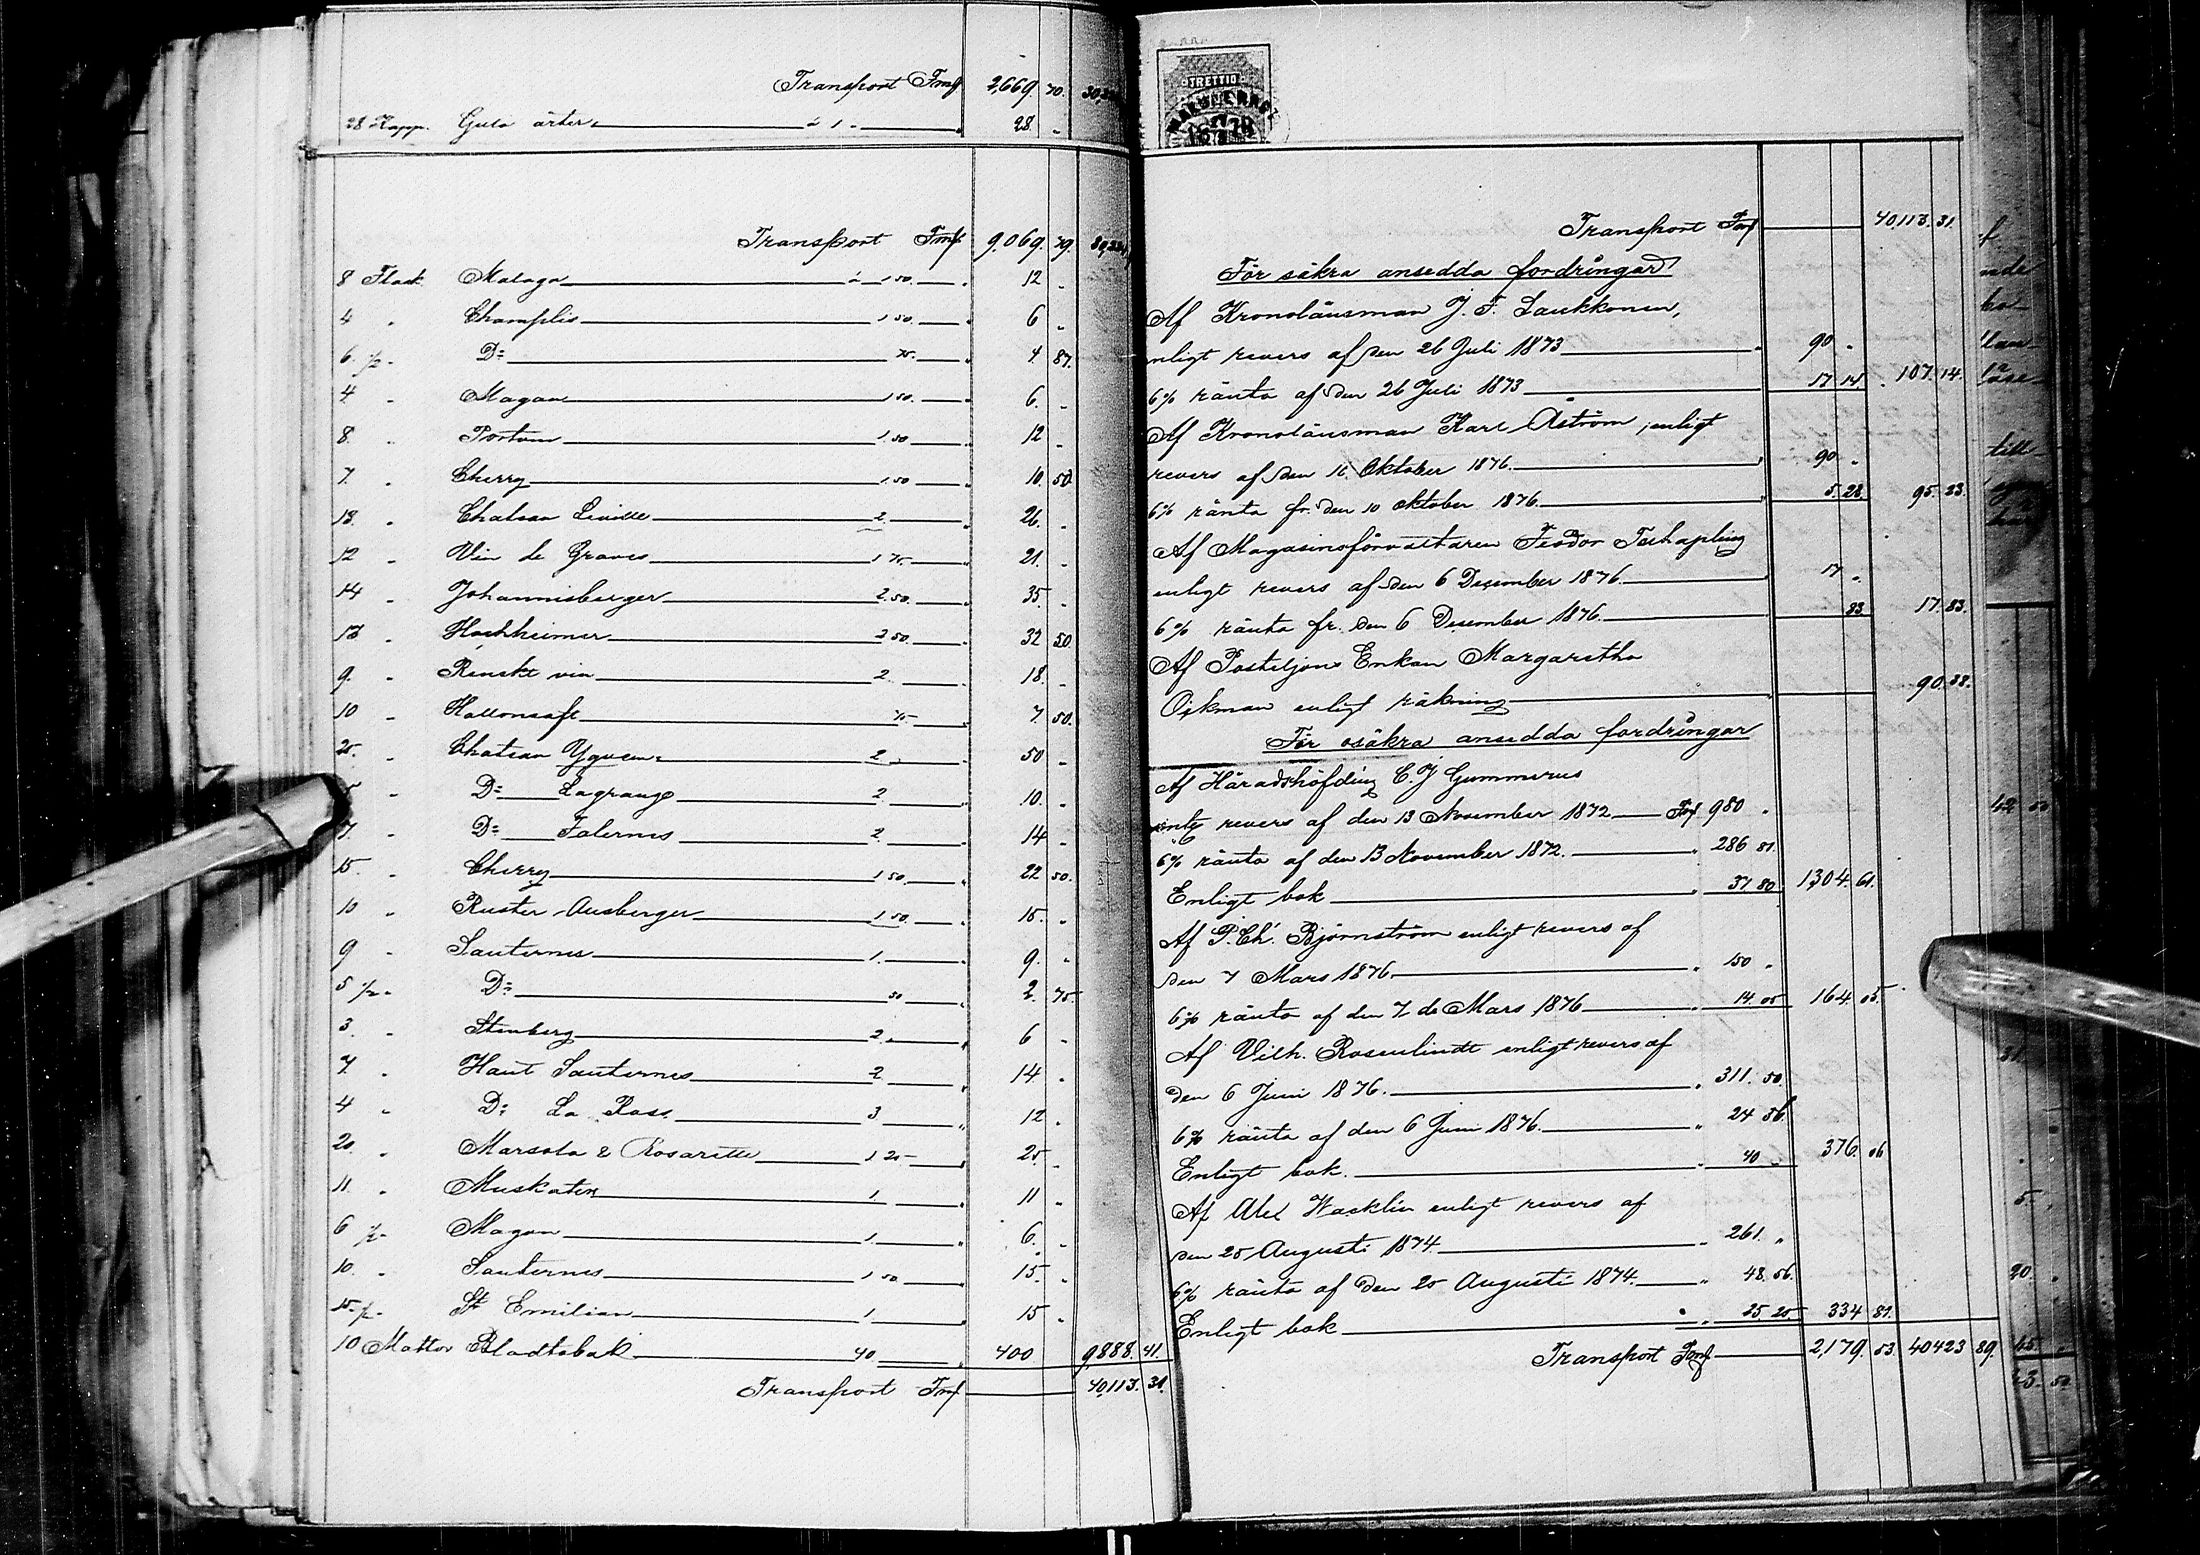 Transport Fmf 2,669. 70.
28 Kapp. Gula ärter à 1 „ 28. „
Transport Fmf 9,069. 79.
8 Flask. Malaga à 1 50. „ 12 „
4 „ Champlis 1 50. „ 6 „
6 ½ „ D:o 75. „ 4 87.
4 „ Magon 1 50. „ 6. „
8. „ Portvin 1.50 „ 12 „
7. „ Cherry 1 50 „ 10. 50.
13. „ Chateau Liville 2. „ 26. „
12 „ Vin de Graves 1 75. „ 21. „
14 „ Johannisberger 2.50. „ 35. „
13 „ Hochheimer 2 50. „ 32 50.
9. „ Renskt vin 2 „ 18. „
10 „ Hallonsaft 75 „ 7. 50.
25. „ Chateau Yquem 2 „ 50 „
„ D:o Lagrange 2 „ 10. „
7. „ D:o Falernes 2 „ 14 „
15. „ Cherry 1 50. „ 22 50.
10 „ Ruster-Ausberger 1.50. „ 15. „
9 „ Sauternes 1. „ 9. „
5 ½ „ D:o 50 „ 2. 75
3. „ Stenberg 2. „ 6 „
7. „ Haut Sauternes 2 „ 14. „
4 „ D:o La Rose 3 „ 12 „
20. „ Marsala & Rosarette 1 25 „ 25. „
11. „ Muskatin 1. „ 11 „
6 ½ „ Magon 1. „ 6. „
10. „ Sauternes 1 50 „ 15. „
15 ½ „ St Emilian 1. „ 15 „
10 Mattor Bladtobak 40 „ 400 9,888. 41.
Transport Fmf 40,113. 31.
TRETTIO
Transport Fmf 40,113. 31.
För säkra ansedda fordringar
Af Kronolänsman J. F. Laukkonen,
enligt revers af den 26 Juli 1873 „ 90 „
6% ränta af den 26 Juli 1873 17 14. „ 107. 14.
Af Kronolänsman Karl Åström, enligt
revers af den 10 Oktober 1876. „ 90 „
6% ränta fr. den 10 Oktober 1876. „ 5. 23 95. 23.
Af Magasinsförvaltaren Feodor Tschapling
enligt revers af den 6 December 1876. „ 17 „
6% ränta fr. den 6 December 1876. 83 17. 83.
Af Postiljons Enkan Margaretha
Öckman enligt räkning „ 90. 38.
För osäkra ansedda fordringar
Af Häradshöfding C. J. Gummerus
enlg revers af den 13 November 1872 Fmf 980 „
6% ränta af den 13 November 1872. „ 286 81.
Enligt bok „ 37 80 1,304. 61.
Af P. Ch. Björnström enligt revers af
den 7 Mars 1876 „ 150 „
6% ränta af den 7 de Mars 1876 „ 14 05 164. 05.
Af Vilh. Rosenlindt enligt revers af
den 6 Juni 1876. „ 311. 50.
6% ränta af den 6 Juni 1876. „ 24 56.
Enligt bok. „ 40 „ 376. 06
Af Alex Wacklin enligt revers af
den 25 Augusti 1874 „ 261. „
6% ränta af den 25 Augusti 1874. „ 48. 56.
Enligt bok „ 25 25 334 81.
Transport Fmf 2,179. 53. 40423 89.